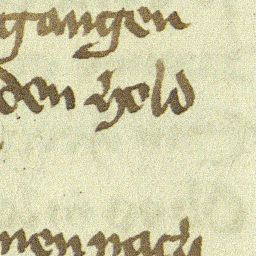 gangen
den held
men nach